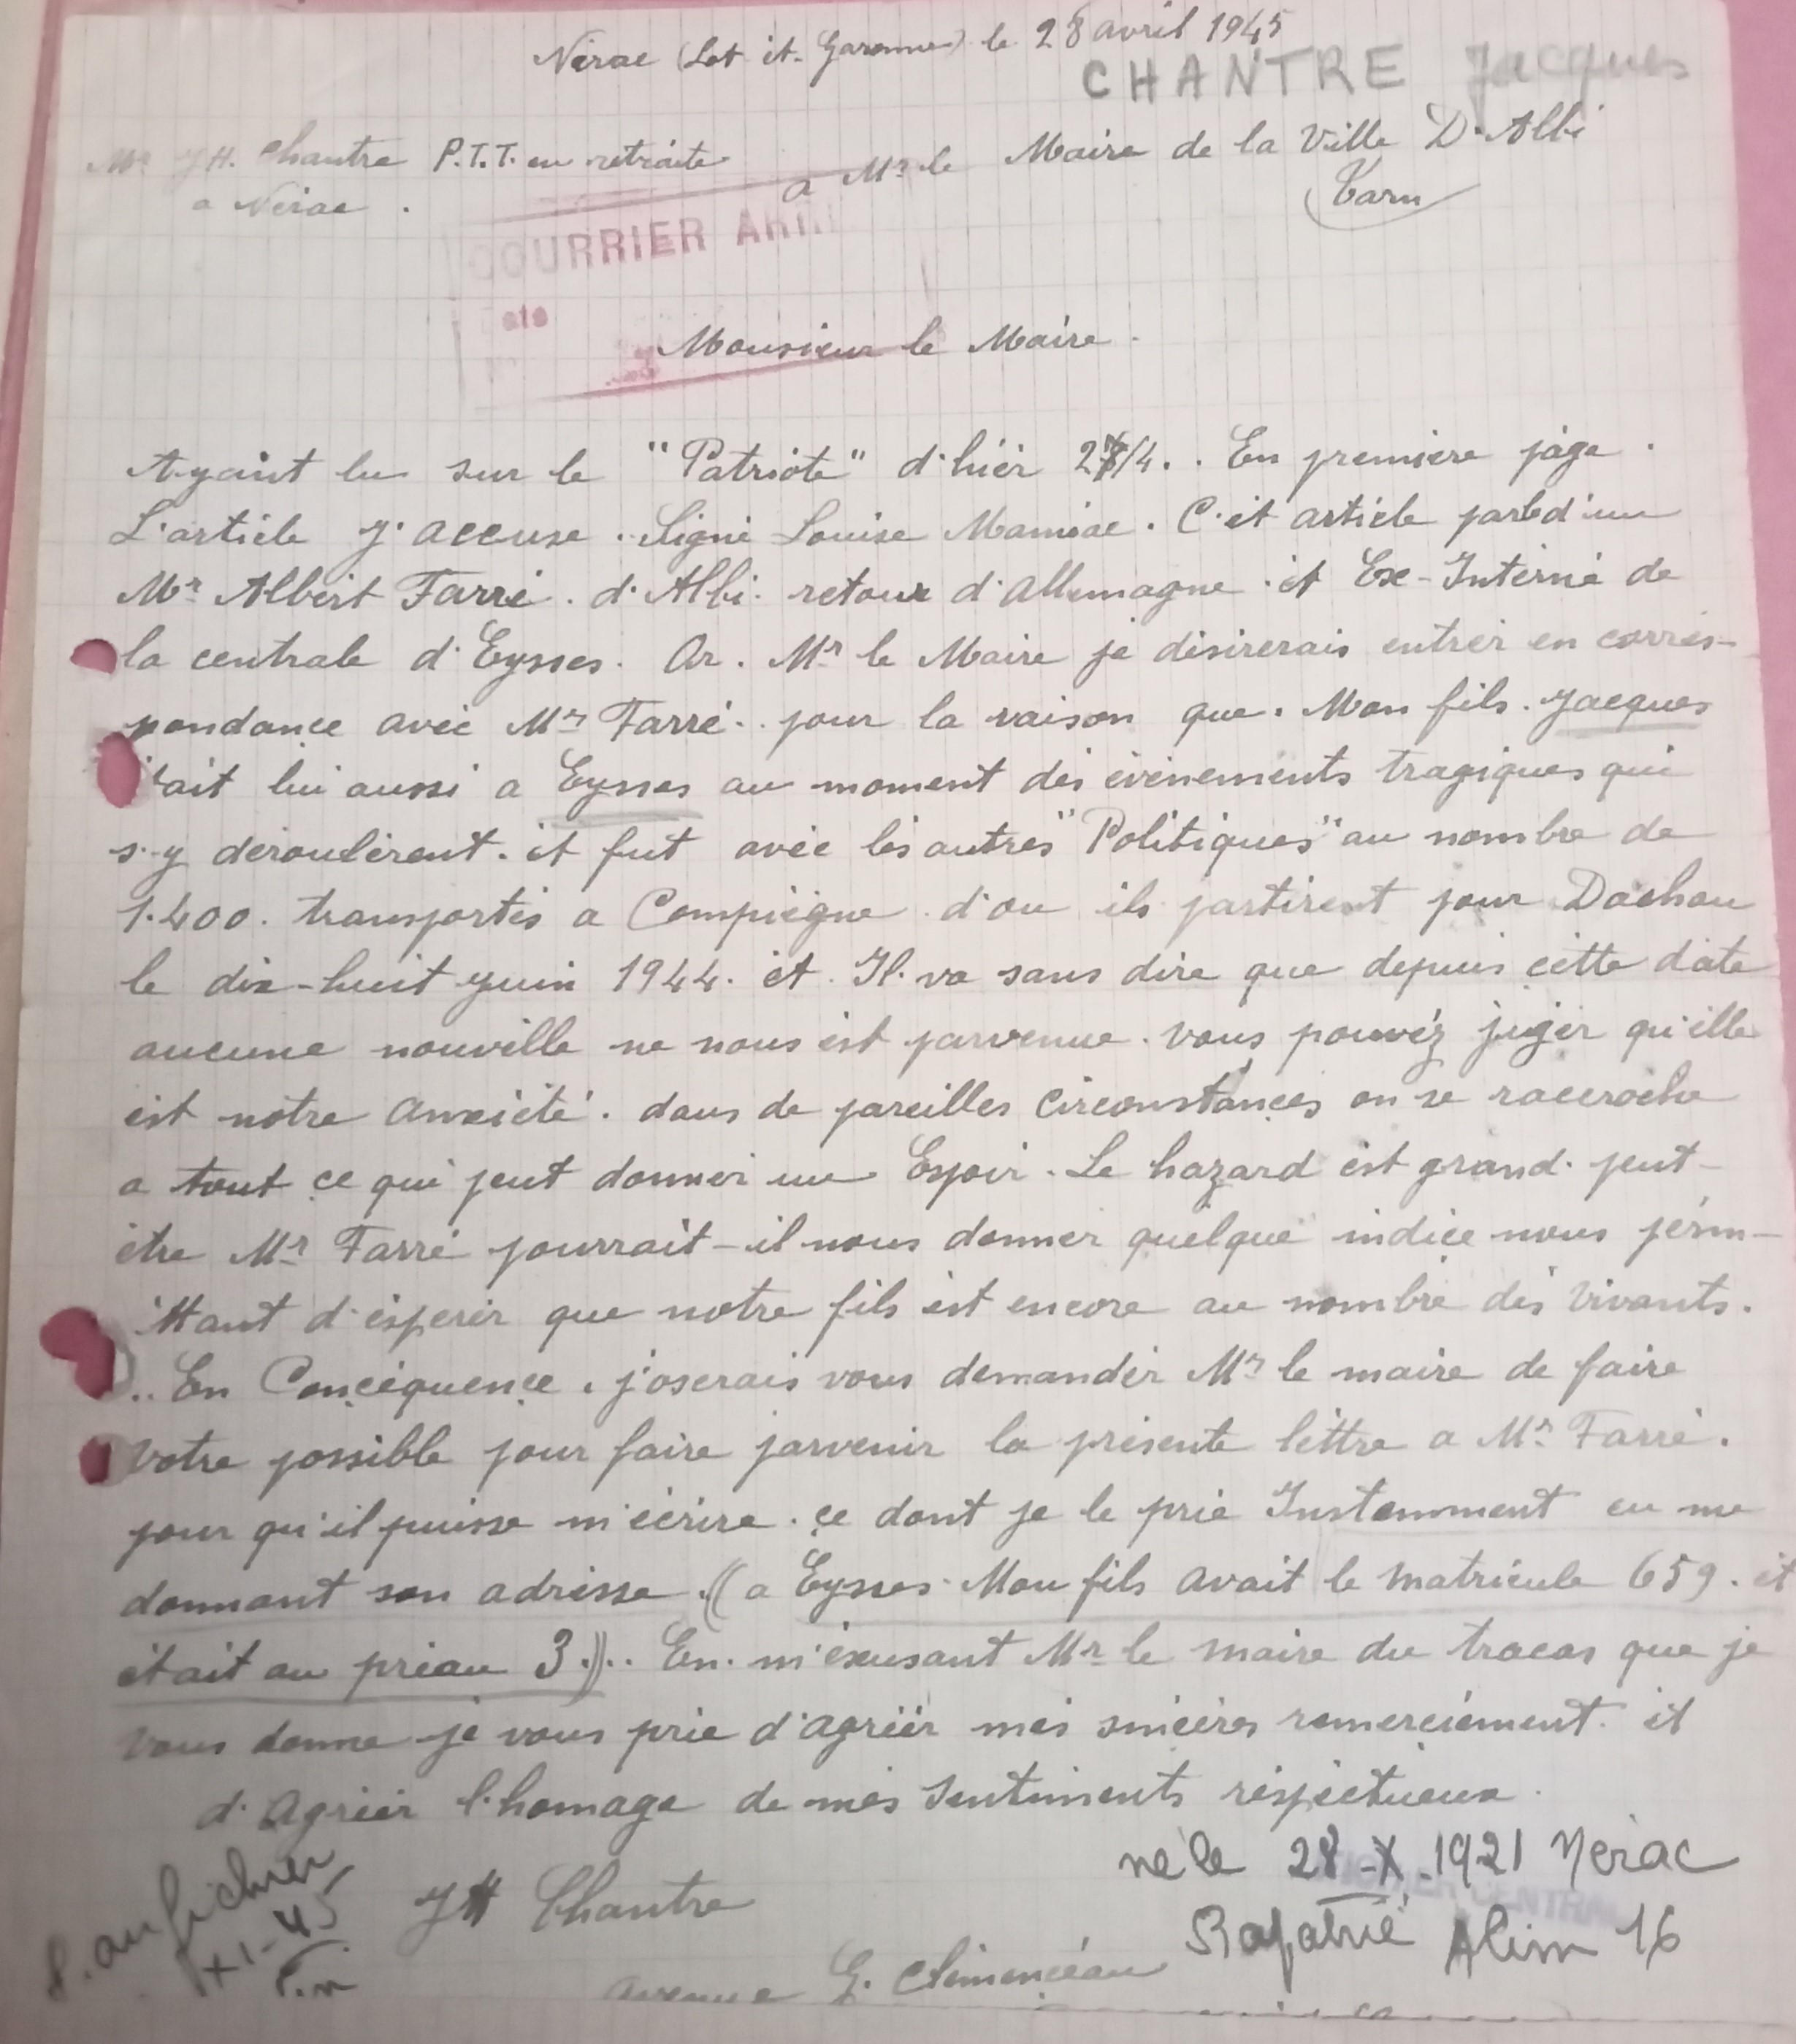 Nérac (Lot et-Garonne) le 28 avril 1945
CHANTRE Jacques
Mr JH. Chantre P.T.T. en retraite
a Nérac.
a Mr le Maire de la Ville D'Albi
Tarn
COURRIER ARRI
ate
Monsieur le Maire.
Ayant lu sur le "Patriote" d'hier 27/4.. En première page.
L'article J'accuse. Signé Louise Mamiac. C'et article parle d'un
Mr Albert Farré. d'Albi. retour d'Allemagne. et Ex-Interné de
la centrale d'Eysses. Or. Mr le Maire je désirerais entrer en corres-
pondance avec Mr Farré.. pour la raison que. Mon fils. Jacques
était lui aussi a Eysses au moment des évènements tragiques qui
s'y déroulèrent. et fut avec les autres "Politiques" au nombre de
1.400. transportés a Compiègne d'ou ils partirent pour Dachau
le dix-huit juin 1944. et. Il. va sans dire que depuis cette date
aucune nouvelle ne nous est parvenue. Vous pouvez juger qu'elle
est notre anxiété. dans de pareilles circonstances on se raccroche
a tout ce qui peut donner un Espoir. Le hazard est grand. peut-
être Mr Farré pourrait-il nous donner quelque indice nous perm-
ettant d'espérer que notre fils est encore au nombre des vivants.
.. En Concéquence. j'oserais vous demander Mr le maire de faire
votre possible pour faire parvenir la présente lettre a Mr Farré.
pour qu'il puisse m'écrire. ce dont je le prie Instemment en me
donnant son adresse. ((a Eysses. Mon fils avait le matricule 659. et
était au préau 3.)).. En. m'éxcusant Mr le maire du tracas que je
vous donne je vous prie d'agréér mes sincères remerciement. et
d'Agréér l'homage de mes Sentiments réspéctueux.
né le 28-X-1921 Nérac
JH Chantre
Rapatrié Alim 16
P. au fichier
XI-45
avenue G. Clémencéau